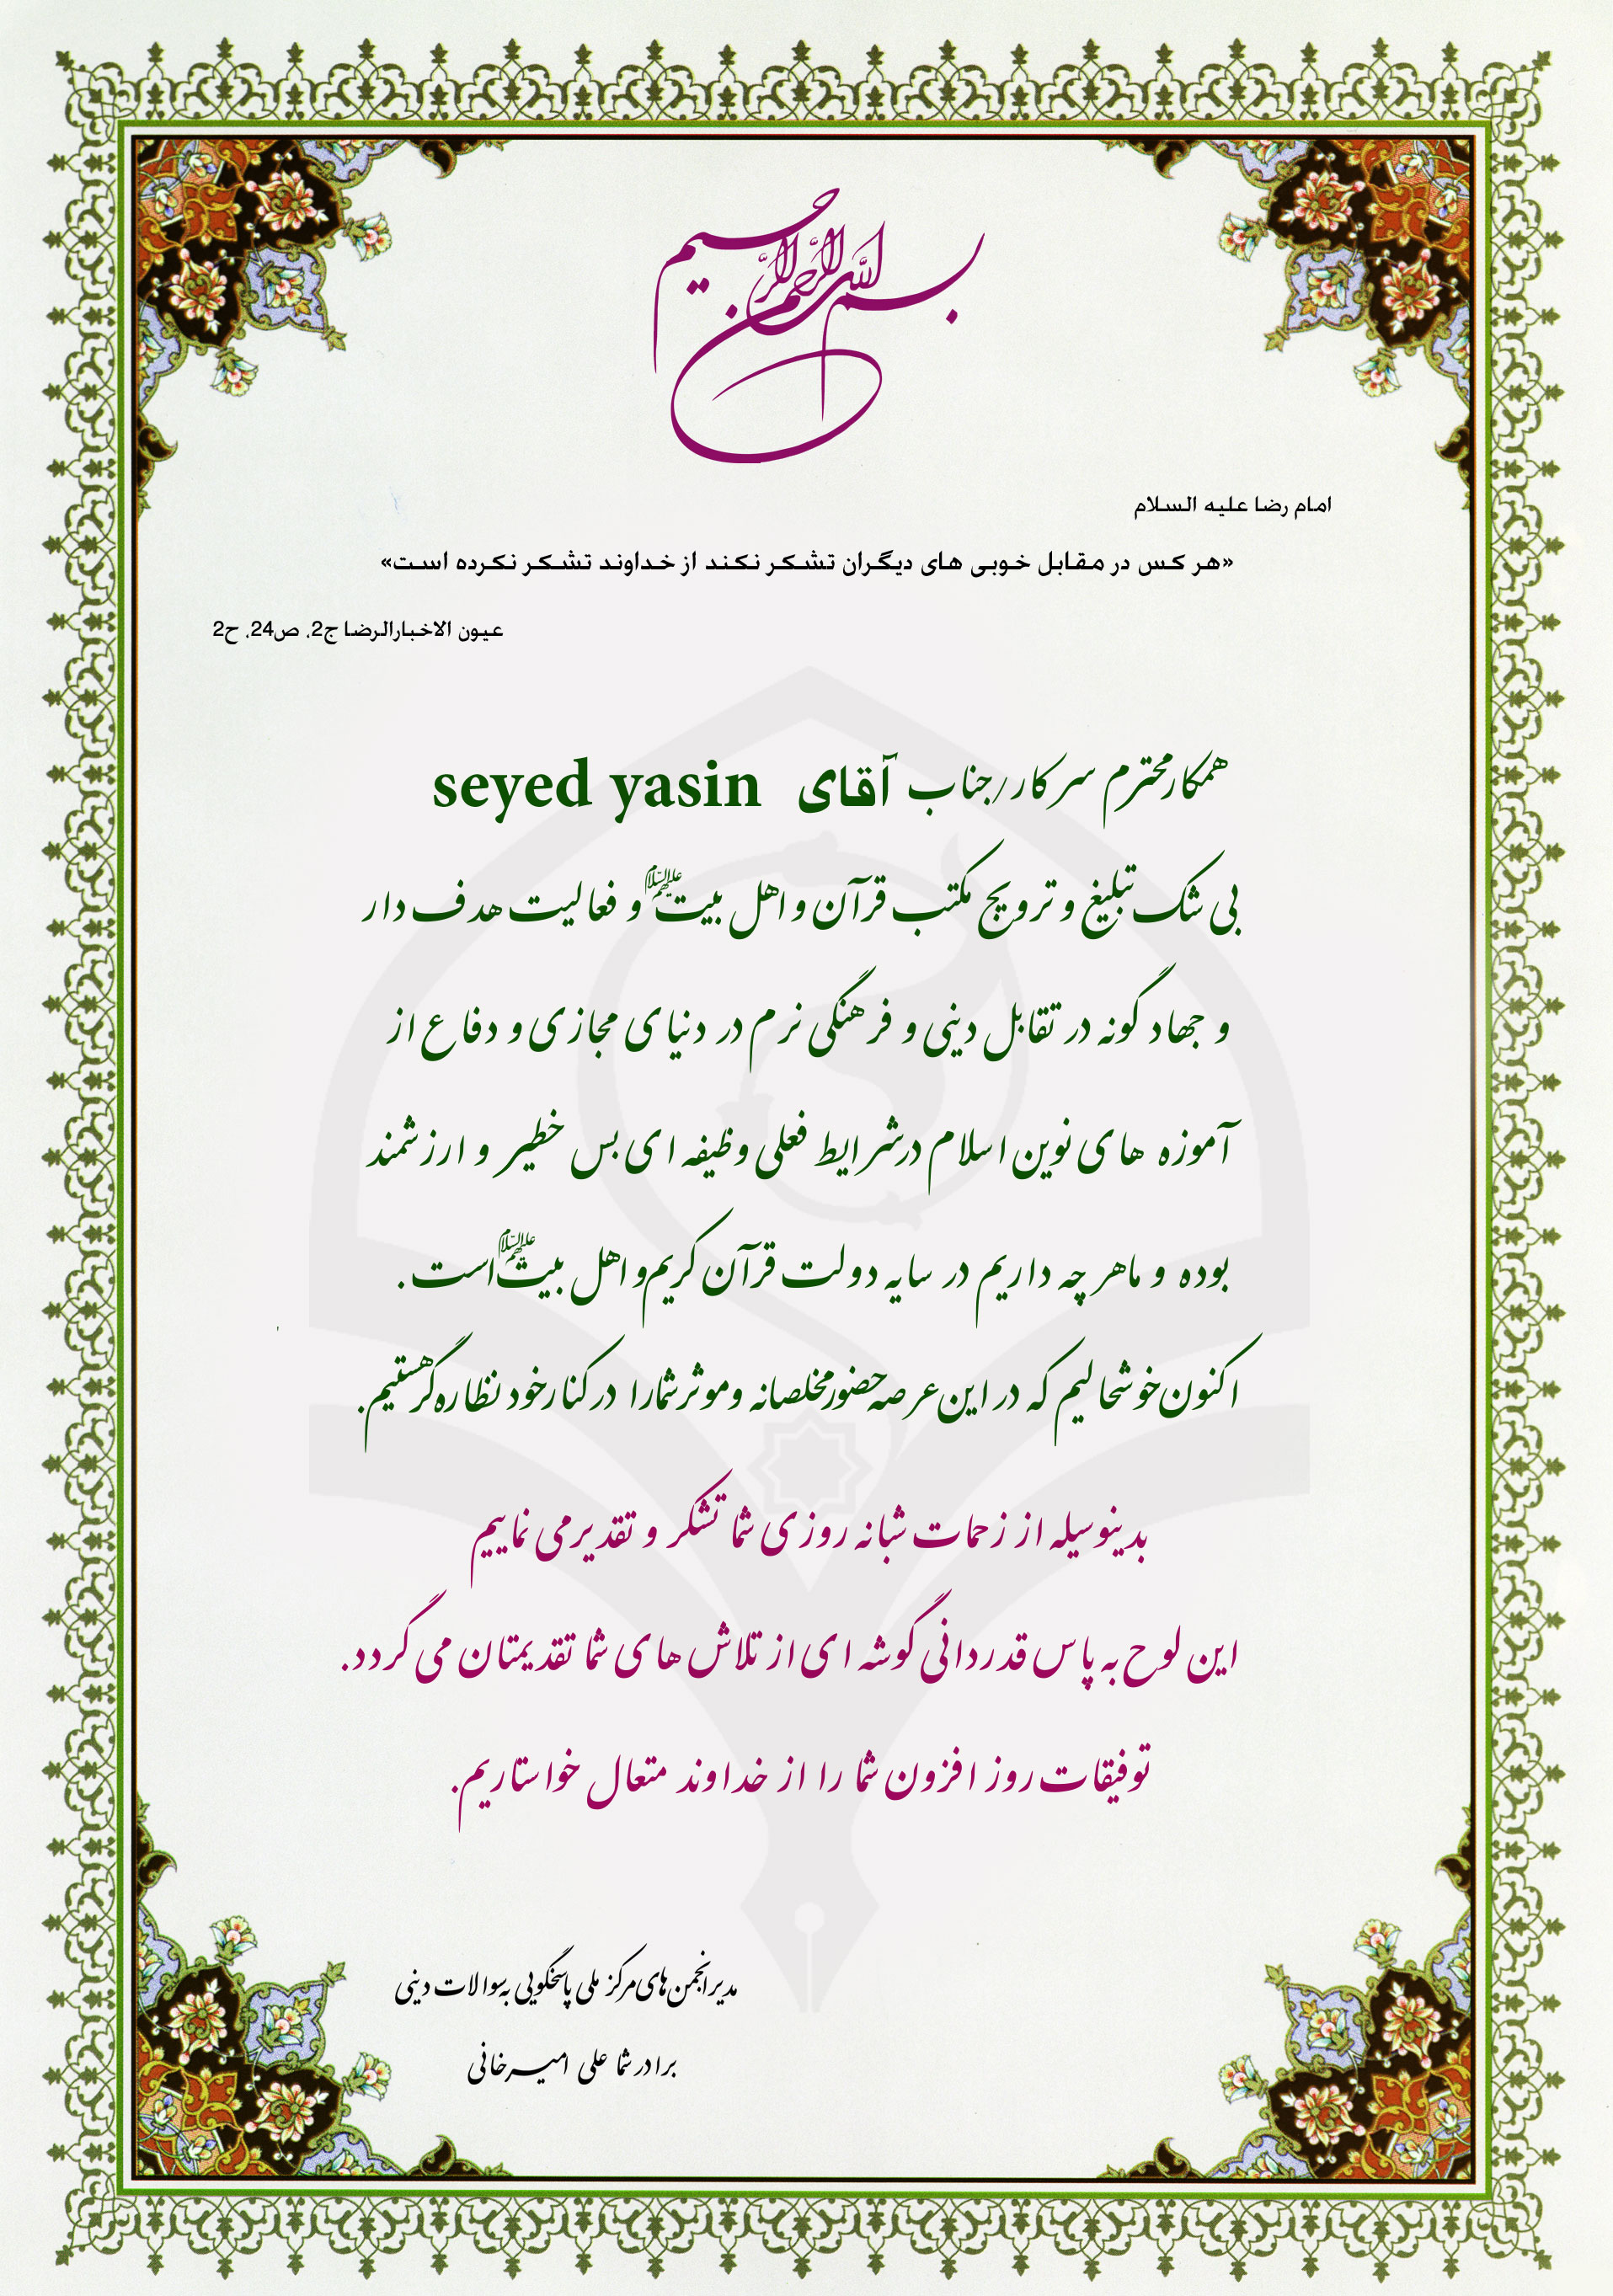 بسم الله الرحمن الرحیم
امام رضا علیه السلام
«هر کس در مقابل خوبی های دیگران تشکر نکند از خداوند تشکر نکرده است»
عیون الاخبارالرضا ج2، ص24، ح2
همکارمحترم سرکار/جناب آقای seyed yasin
بی شک تبلیغ و ترویج مکتب قرآن و اهل بیت علیهم السلام و فعالیت هدف دار
و جهاد گونه در تقابل دینی و فرهنگی نرم در دنیای مجازی و دفاع از
آموزه های نوین اسلام درشرایط فعلی وظیفه ای بس خطیر و ارزشمند
بوده و ماهر چه داریم در سایه دولت قرآن کریم و اهل بیت علیهم السلام است.
اکنون خوشحالیم که در این عرصه حضور مخلصانه و موثر شما را در کنار خود نظاره گر هستیم.
بدینوسیله از زحمات شبانه روزی شما تشکر و تقدیر می نماییم
این لوح به پاس قدردانی گوشه ای از تلاش های شما تقدیمتان می گردد.
توفیقات روز افزون شما را از خداوند متعال خواستاریم.
مدیر انجمن های مرکز ملی پاسخگویی به سوالات دینی
برادر شما علی امیرخانی